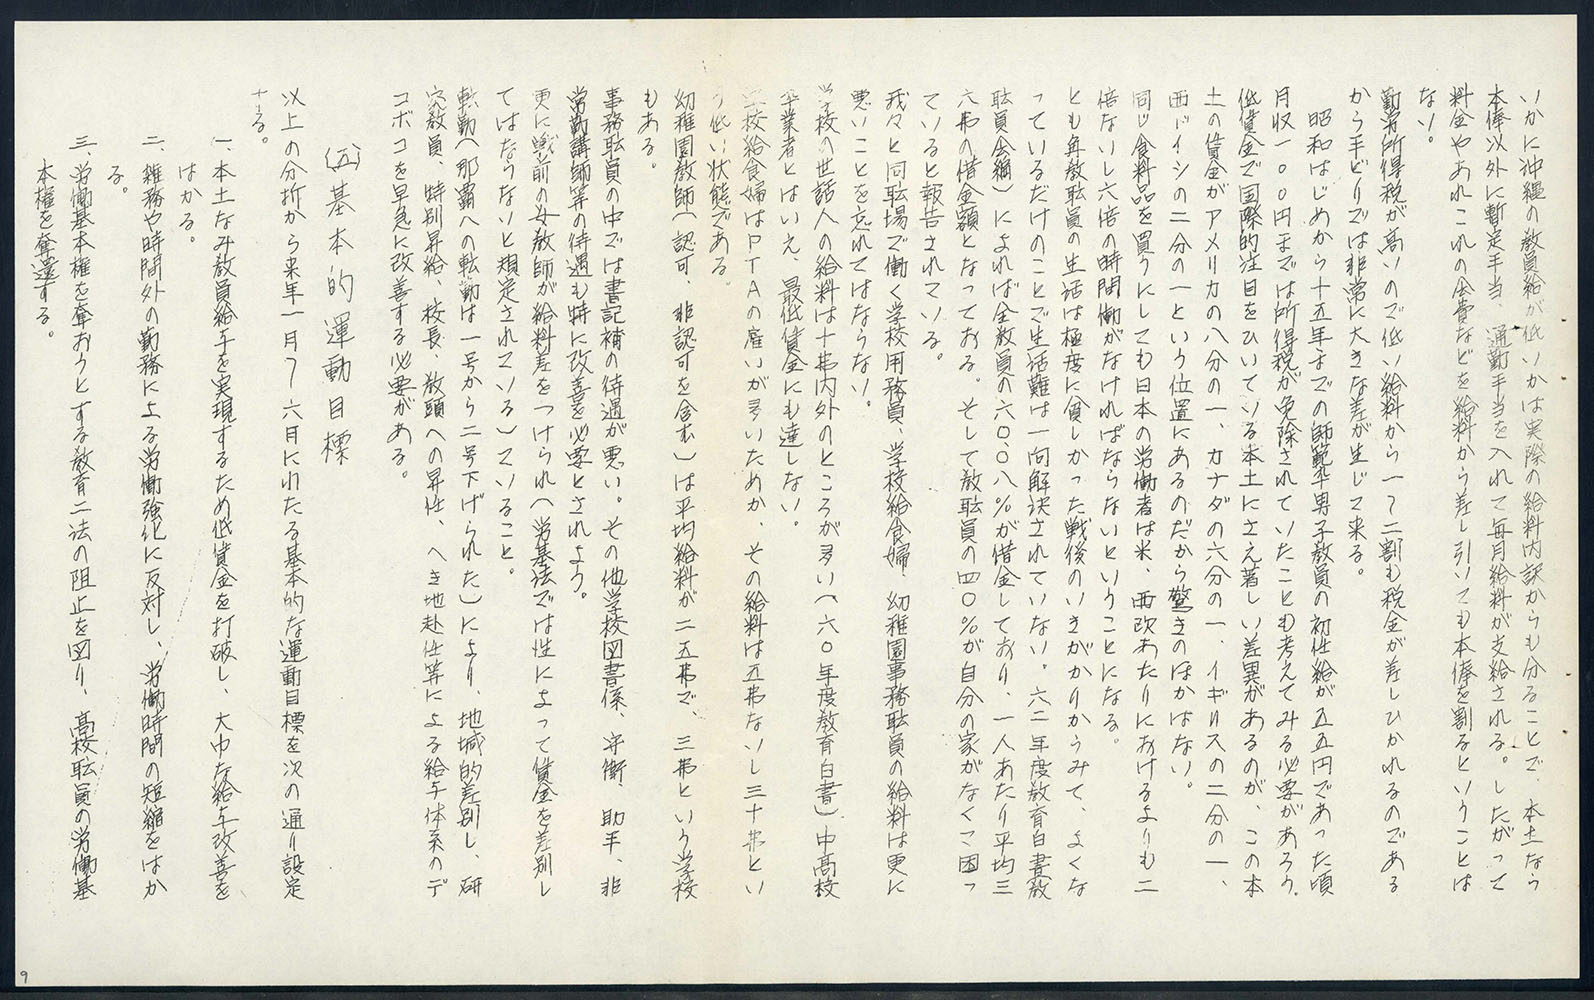 いかに沖縄の教員給が低いかは実際の給料内訳からも分ることで、本土なら
本俸以外に暫定手当、通勤手当を入れて毎月給料が支給される。したがって
料金やあれこれの会費などを給料から差し引いても本俸を割るということは
ない。
勤労所得税が高いので低い給料から一〜二割も税金が差しひかれるのである
から手どりでは非常に大きな差が生じて来る。
昭和はじめから十五年までの師範卒男子教員の初任給が五五円であった頃
月収一〇〇円までは所得税が免除されていたことも考えてみる必要があろう。
低賃金で国際的注目をひいている本土にさえ著しい差異があるのが、この本
土の賃金がアメリカの八分の一、カナダの六分の一、イギリスの二分の一、
西ドイツの二分の一という位置にあるのだから驚きのほかはない。
同じ食料品を買うにしても日本の労働者は米、西欧あたりにおけるよりも二
倍ないし六倍の時間働がなければならないということになる。
とも角教職員の生活は極度に貧しかった戦後のいきがかりからみて、よくな
っているだけのことで生活難は一向解決されていない。六二年度教育白書教
職員会編）によれば全教員の六〇、〇八％が借金しており、一人あたり平均三
六弗の借金額となっておる。そして教職員の四〇％が自分の家がなくて困っ
ていると報告されている。
我々と同職場で働く学校用務員、学校給食婦、幼稚園事務職員の給料は更に
悪いことを忘れてはならない。
学校の世話人の給料は十弗内外のところが多い（六〇年度教育白書）中高校
卒業者とはいえ、最低賃金にも達しない。
学校給食婦はPTAの雇いが多いためか、その給料は五弗ないし三十弗とい
う低い状態である。
幼稚園教師（認可、非認可を含む）は平均給料が二五弗で、三弗という学校
もある。
事務職員の中では書記補の待遇が悪い。その他学校図書係、守衛、助手、非
常勤講師等の待遇も特に改善を必要とされよう。
更に戦前の女教師が給料差をつけられ（労基法では性によって賃金を差別し
てはならないと規定されている）ていること。
転勤（那覇への転勤は一号から二号下げられた）により、地域的差別し、研
究教員、特別昇給、校長、教頭への昇任、へき地赴任等による給与体系のデ
コボコを早急に改善する必要がある。
（五）基本的運動目標
以上の分折から来年一月〜六月にわたる基本的な運動目標を次の通り設定
する。
一、本土なみ教員給与を実現するため低賃金を打破し、大巾な給与改善を
はかる。
二、雑務や時間外の勤務による労働強化に反対し、労働時間の短縮をはか
る。
三、労働基本権を奪おうとする教育二法の阻止を図り、高校職員の労働基
本権を奪還する。
9